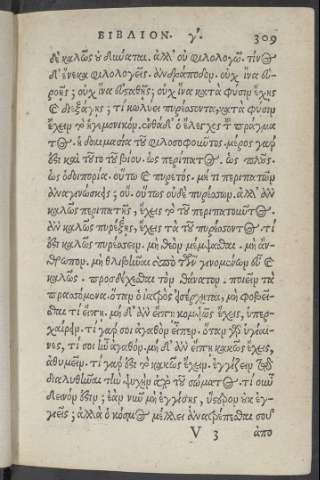 ΒΙΒΛΙΟΝ. γ´. 309
δὲ καλῶς οὐ δύναται. ἀλλ' οὐ φιλολογῶ. τίνος
δ' ἕνεκα φιλολογεῖς. ἀνδράποδον. οὐχ ἵνα εὐ-
ροῇς; οὐχ ἵνα εὐσταθῇς; οὐχ ἵνα κατὰ φύσιν ἔχῃς
καὶ διεξάγῃς; τί κωλύει πυρέσσοντα, κατὰ φύσιν
ἔχειν τὸ ἡγεμονικόν. ἐνθάδ' ὁ ἔλεγχος τοῦ πράγμα
τος. ἡ δοκιμασία τοῦ φιλοσοφοῦντος. μέρος γάρ
ἐστι καὶ τοῦτο τοῦ βίου. ὡς περίπατος. ὡς πλοῦς.
ὡς ὁδοιπορία. οὕτω καὶ πυρετός. μή τι περιπατῶν
ἀναγινώσκεις; οὔ. οὕτως οὐδὲ πυρέσσων. ἀλλ' ἂν
καλῶς περιπατῇς, ἔχεις τὸ τοῦ περιπατοῦντος.
ἂν καλῶς πυρέξῃς, ἔχεις τὰ τοῦ πυρέσσοντος. τί
ἐστι καλῶς πυρέσσειν. μὴ θεὸν μέμψασθαι. μὴ ἄν-
θρωπον. μὴ θλιβῆναι ὑπὸ τῶν γινομένων εὖ καὶ
καλῶς. προσδέχεσθαι τὸν θάνατον. ποιεῖν τὰ
προσσόμενα. ὅταν ὁ ἰατρὸς εἰσέρχηται, μὴ φοβεῖ-
σθαι τί εἴπῃ. μὴ δ' ἂν εἴπῃ κομψῶς ἔχεις, ὑπερ-
χαίρειν. τί γάρ σοι ἀγαθὸν εἶπεν. ὅταν γὰρ ὑγίαι-
νες, τί σοι ἦν ἀγαθόν. μὴ δ' ἂν εἴπῃ κακῶς ἔχεις,
ἀθυμεῖν. τί γάρ ἐστι τὸ κακῶς ἔχειν. ἐγγίζειν τῷ
διαλυθῆναι τὴν ψυχὴν ἀπὸ τοῦ σώματος. τί οὖν
δεινόν ἐστιν; ἐὰν νῦν μὴ ἐγγίσῃς, ὕστερον οὐκ ἐγ-
γιεῖς; ἀλλὰ ὁ κόσμος μέλλει ἀνατρέπεσθαι σοῦ
V 3 ἀπο